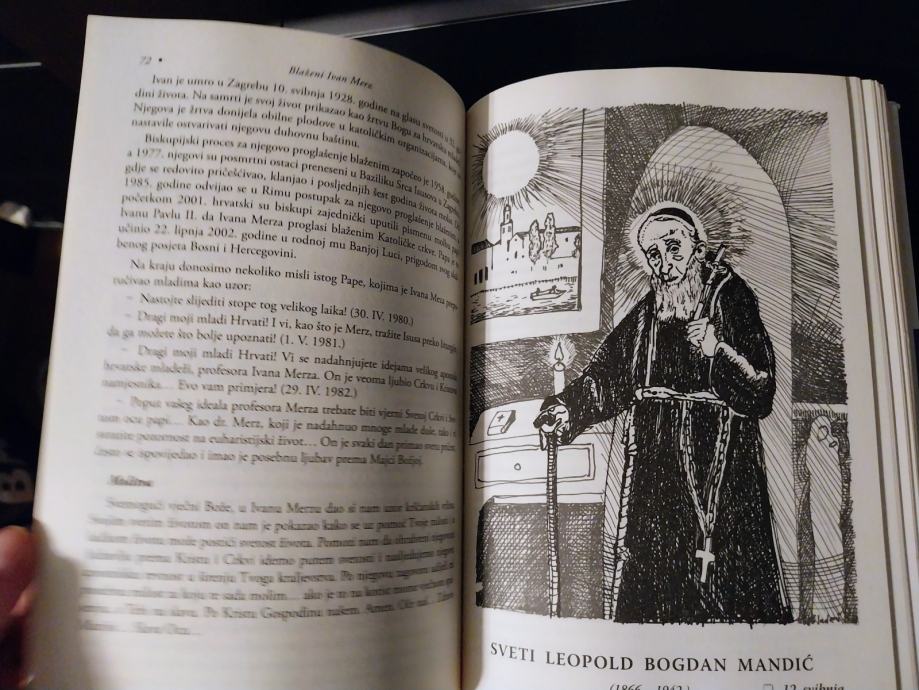 72 •
Blaženi Ivan Merz
Ivan je umro u Zagrebu 10. svibnja 1928. godine na glasu svetosti u 32.
dini života. Na samrti je svoj život prikazao kao žrtvu Bogu za hrvatsku
Njegova je žrtva donijela obilne plodove u katoličkim organizacijama, koje
nastavile ostvarivati njegovu duhovnu baštinu.
Biskupijski proces za njegovo proglašenje blaženim započeo je 1958. godine,
a 1977. njegovi su posmrtni ostaci preneseni u Baziliku Srca Isusova u Zagrebu,
gdje se redovito pričešćivao, klanjao i posljednjih šest godina života molio. Od
1985. godine odvijao se u Rimu postupak za njegovo proglašenje blaženim, a
početkom 2001. hrvatski su biskupi zajednički uputili pismenu molbu papi
Ivanu Pavlu II. da Ivana Merza proglasi blaženim Katoličke crkve. Papa je to
učinio 22. lipnja 2002. godine u rodnoj mu Banjoj Luci, prigodom svog
benog posjeta Bosni i Hercegovini.
Na kraju donosimo nekoliko misli istog Pape, kojima je Ivana Merza
ručivao mladima kao uzor:
– Nastojte slijediti stope tog velikog laika! (30. IV. 1980.)
– Dragi moji mladi Hrvati! I vi, kao što je Merz, tražite Isusa preko
da ga možete što bolje upoznati! (1. V. 1981.)
– Dragi moji mladi Hrvati! Vi se nadahnjujete idejama velikog apostola
hrvatske mladeži, profesora Ivana Merza. On je veoma ljubio Crkvu i Kristova
namjesnika... Evo vam primjera! (29. IV. 1982.)
– Poput vašeg ideala profesora Merza trebate biti vjerni Svetoj Crkvi i
tom ocu papi... Kao dr. Merz, koji je nadahnuo mnoge mlade duše, tako i
svratite pozornost na euharistijski život... On je svaki dan primao svetu pričest,
često se ispovijedao i imao je posebnu ljubav prema Majci Božjoj.
Molitva
Svemogući vječni Bože, u Ivanu Merzu dao si nam uzor kršćanskih
Svojim svetim životom on nam je pokazao kako se uz pomoć Tvoje milosti u
može postići svetost života. Pomozi nam da
prema Kristu i Crkvi idemo putem svetosti i
u širenju Tvoga kraljevstva. Po njegovu zagovoru udijeli
milost za koju te sada molim... ako je to na korist
Tebi na slavu. Po Kristu Gospodinu našem. Amen. Oče naš...
Slava Ocu...
SVETI LEOPOLD BOGDAN MANDIĆ
(1866. – 1942.)
12. svibnja